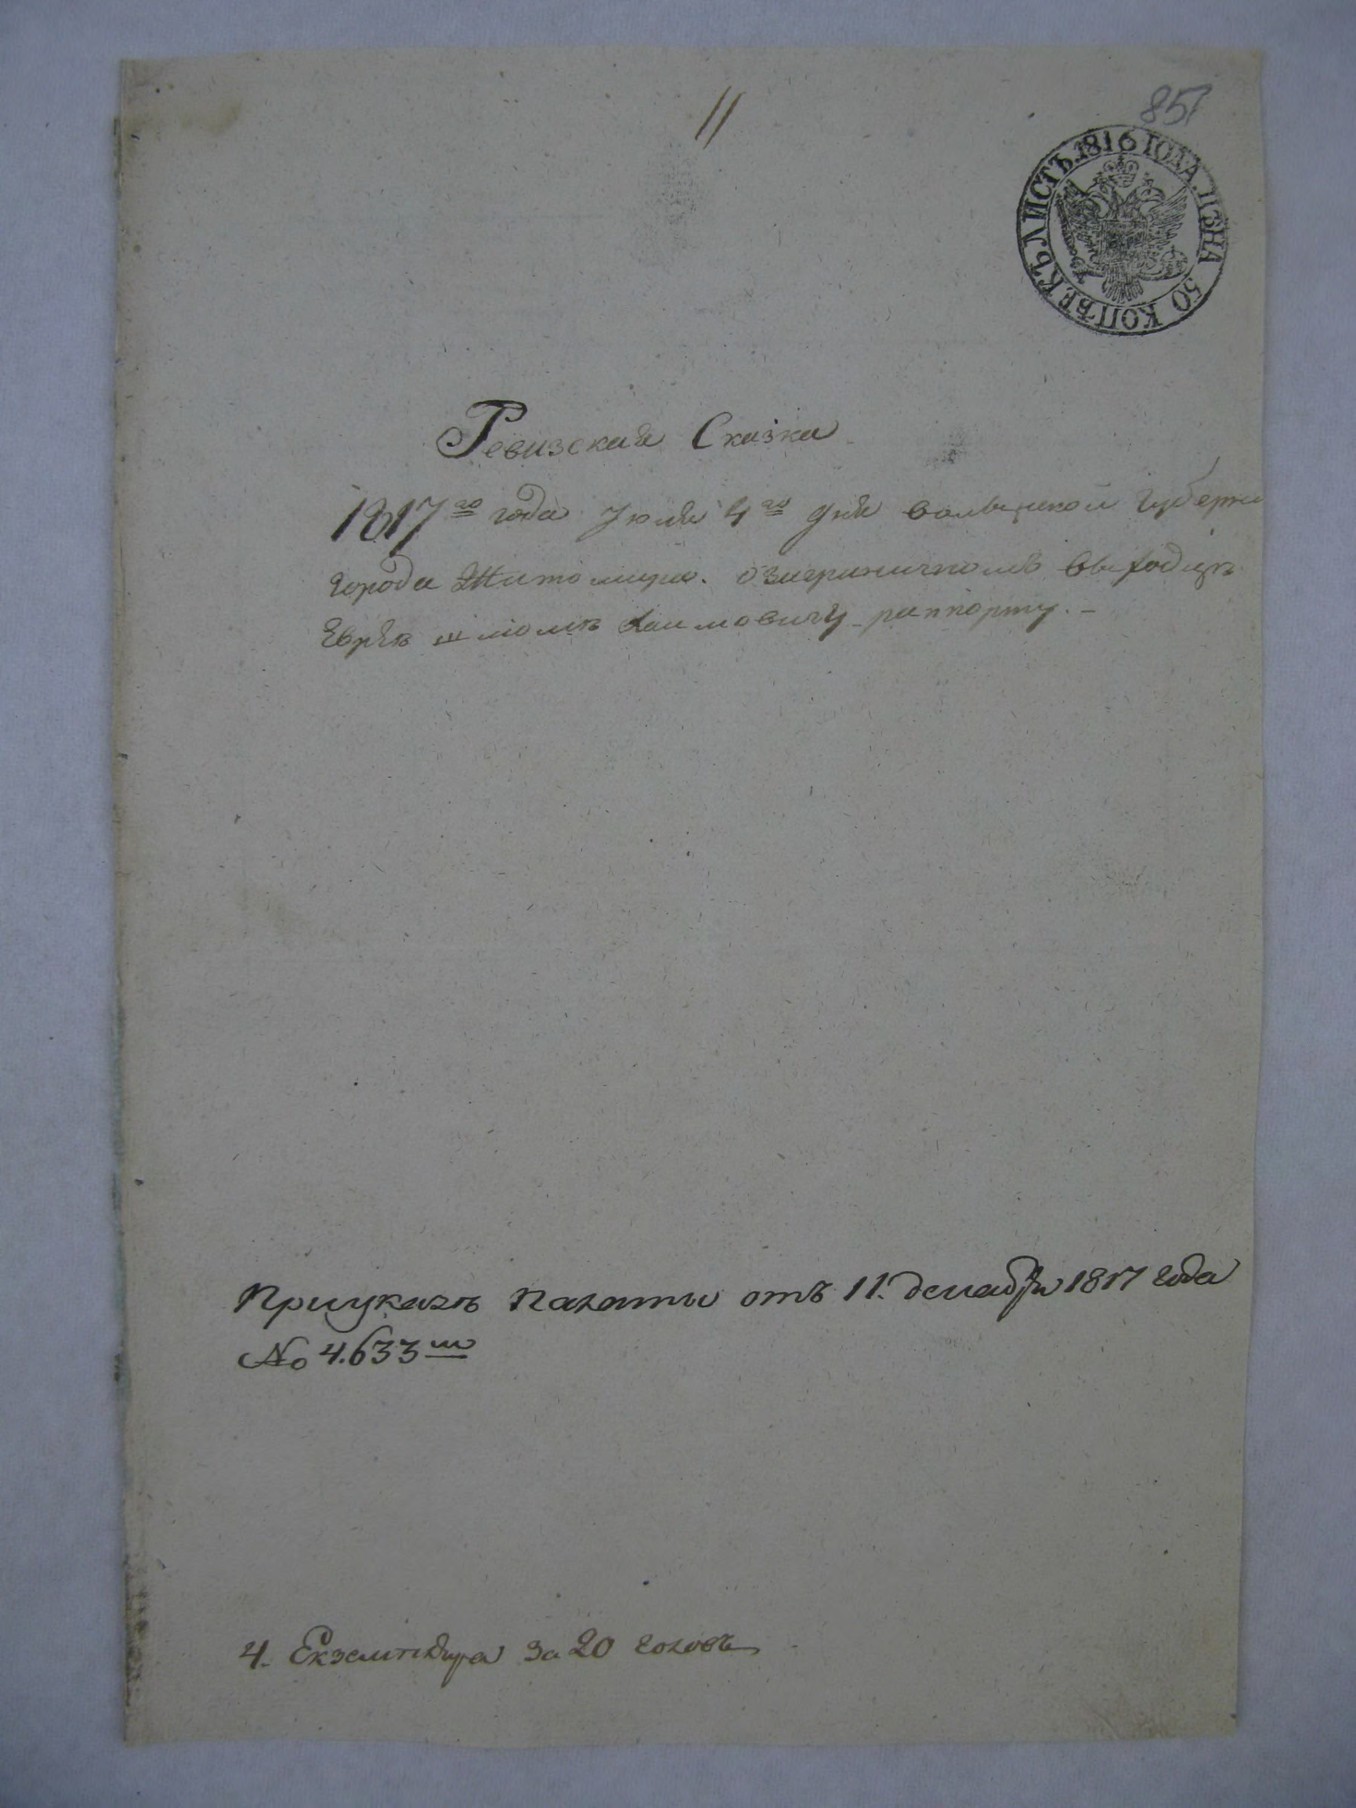 11
857
ЛИСТЪ. 1816 ГОДА. ЦѢНА 50 КОПѢЕКЪ
Ревизская Сказка
1817го года Июля 4го дня волынской губерни
города Житомира. о заграничномъ выходцѣ
Еврѣѣ шмюлѣ Хаимовичу раппорту. –
При указѣ палаты отъ 11. декабря 1817 года
No 4.633мъ
4. Екземпляра за 20 головъ